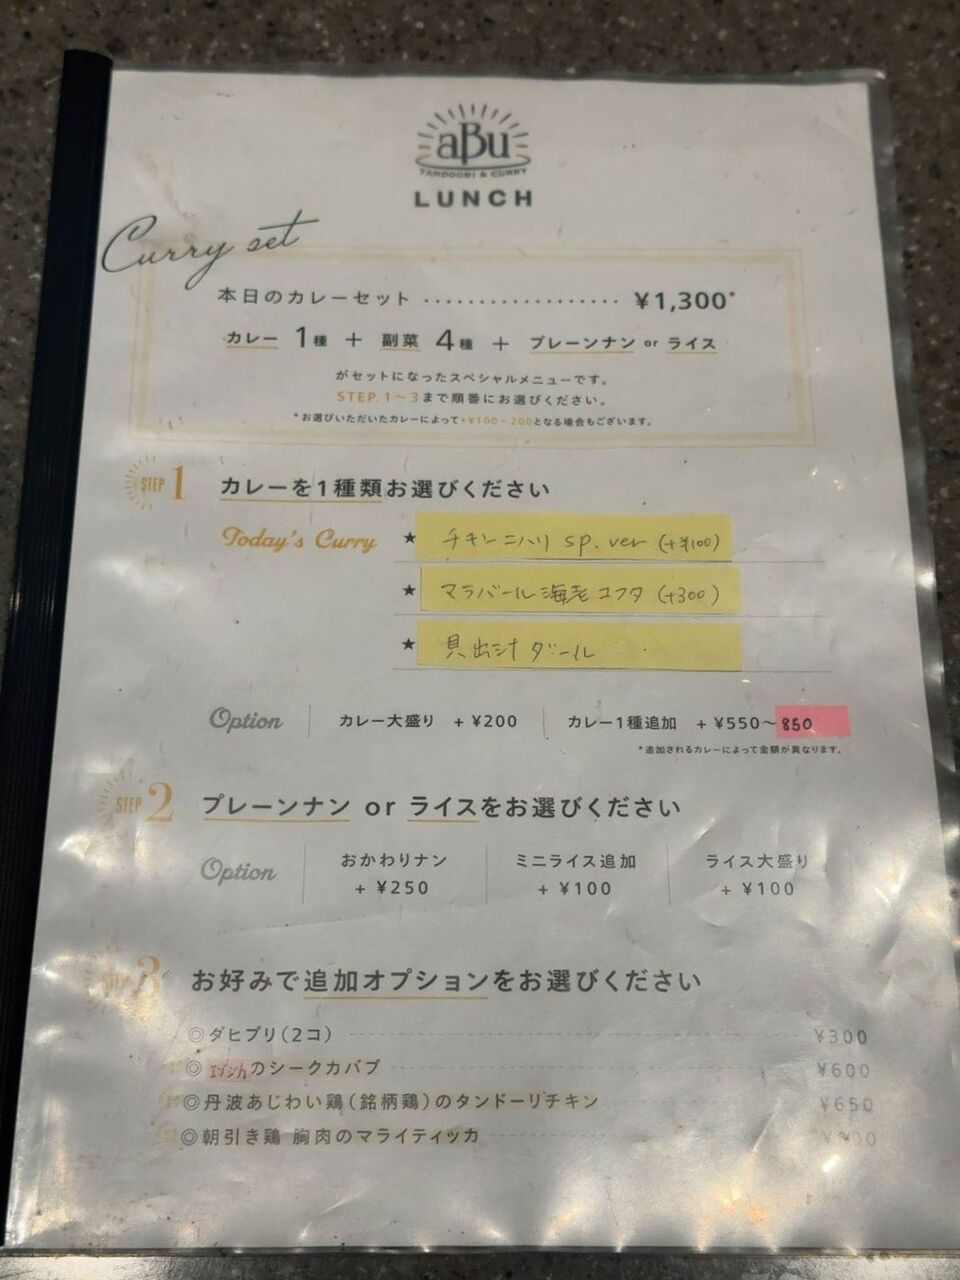 aBu
TANDOORI & CURRY
LUNCH
Curry set
本日のカレーセット .................. ¥1,300*
カレー 1種 + 副菜 4種 + プレーンナン or ライス
がセットになったスペシャルメニューです。
STEP.1~3まで順番にお選びください。
*お選びいただいたカレーによって+¥100~200となる場合もございます。
STEP 1 カレーを1種類お選びください
Today's Curry ★ チキンニハリ sp.ver (+¥100)
★ マラバール海老コフタ (+300)
★ 貝出汁ダール
Option カレー大盛り + ¥200 カレー1種追加 + ¥550~850
*追加されるカレーによって金額が異なります。
STEP 2 プレーンナン or ライスをお選びください
Option おかわりナン + ¥250 ミニライス追加 + ¥100 ライス大盛り + ¥100
STEP 3 お好みで追加オプションをお選びください
◎ダヒプリ(2コ) ¥300
◎エゾシカのシークカバブ ¥600
◎丹波あじわい鶏(銘柄鶏)のタンドーリチキン ¥650
◎朝引き鶏 胸肉のマライティッカ